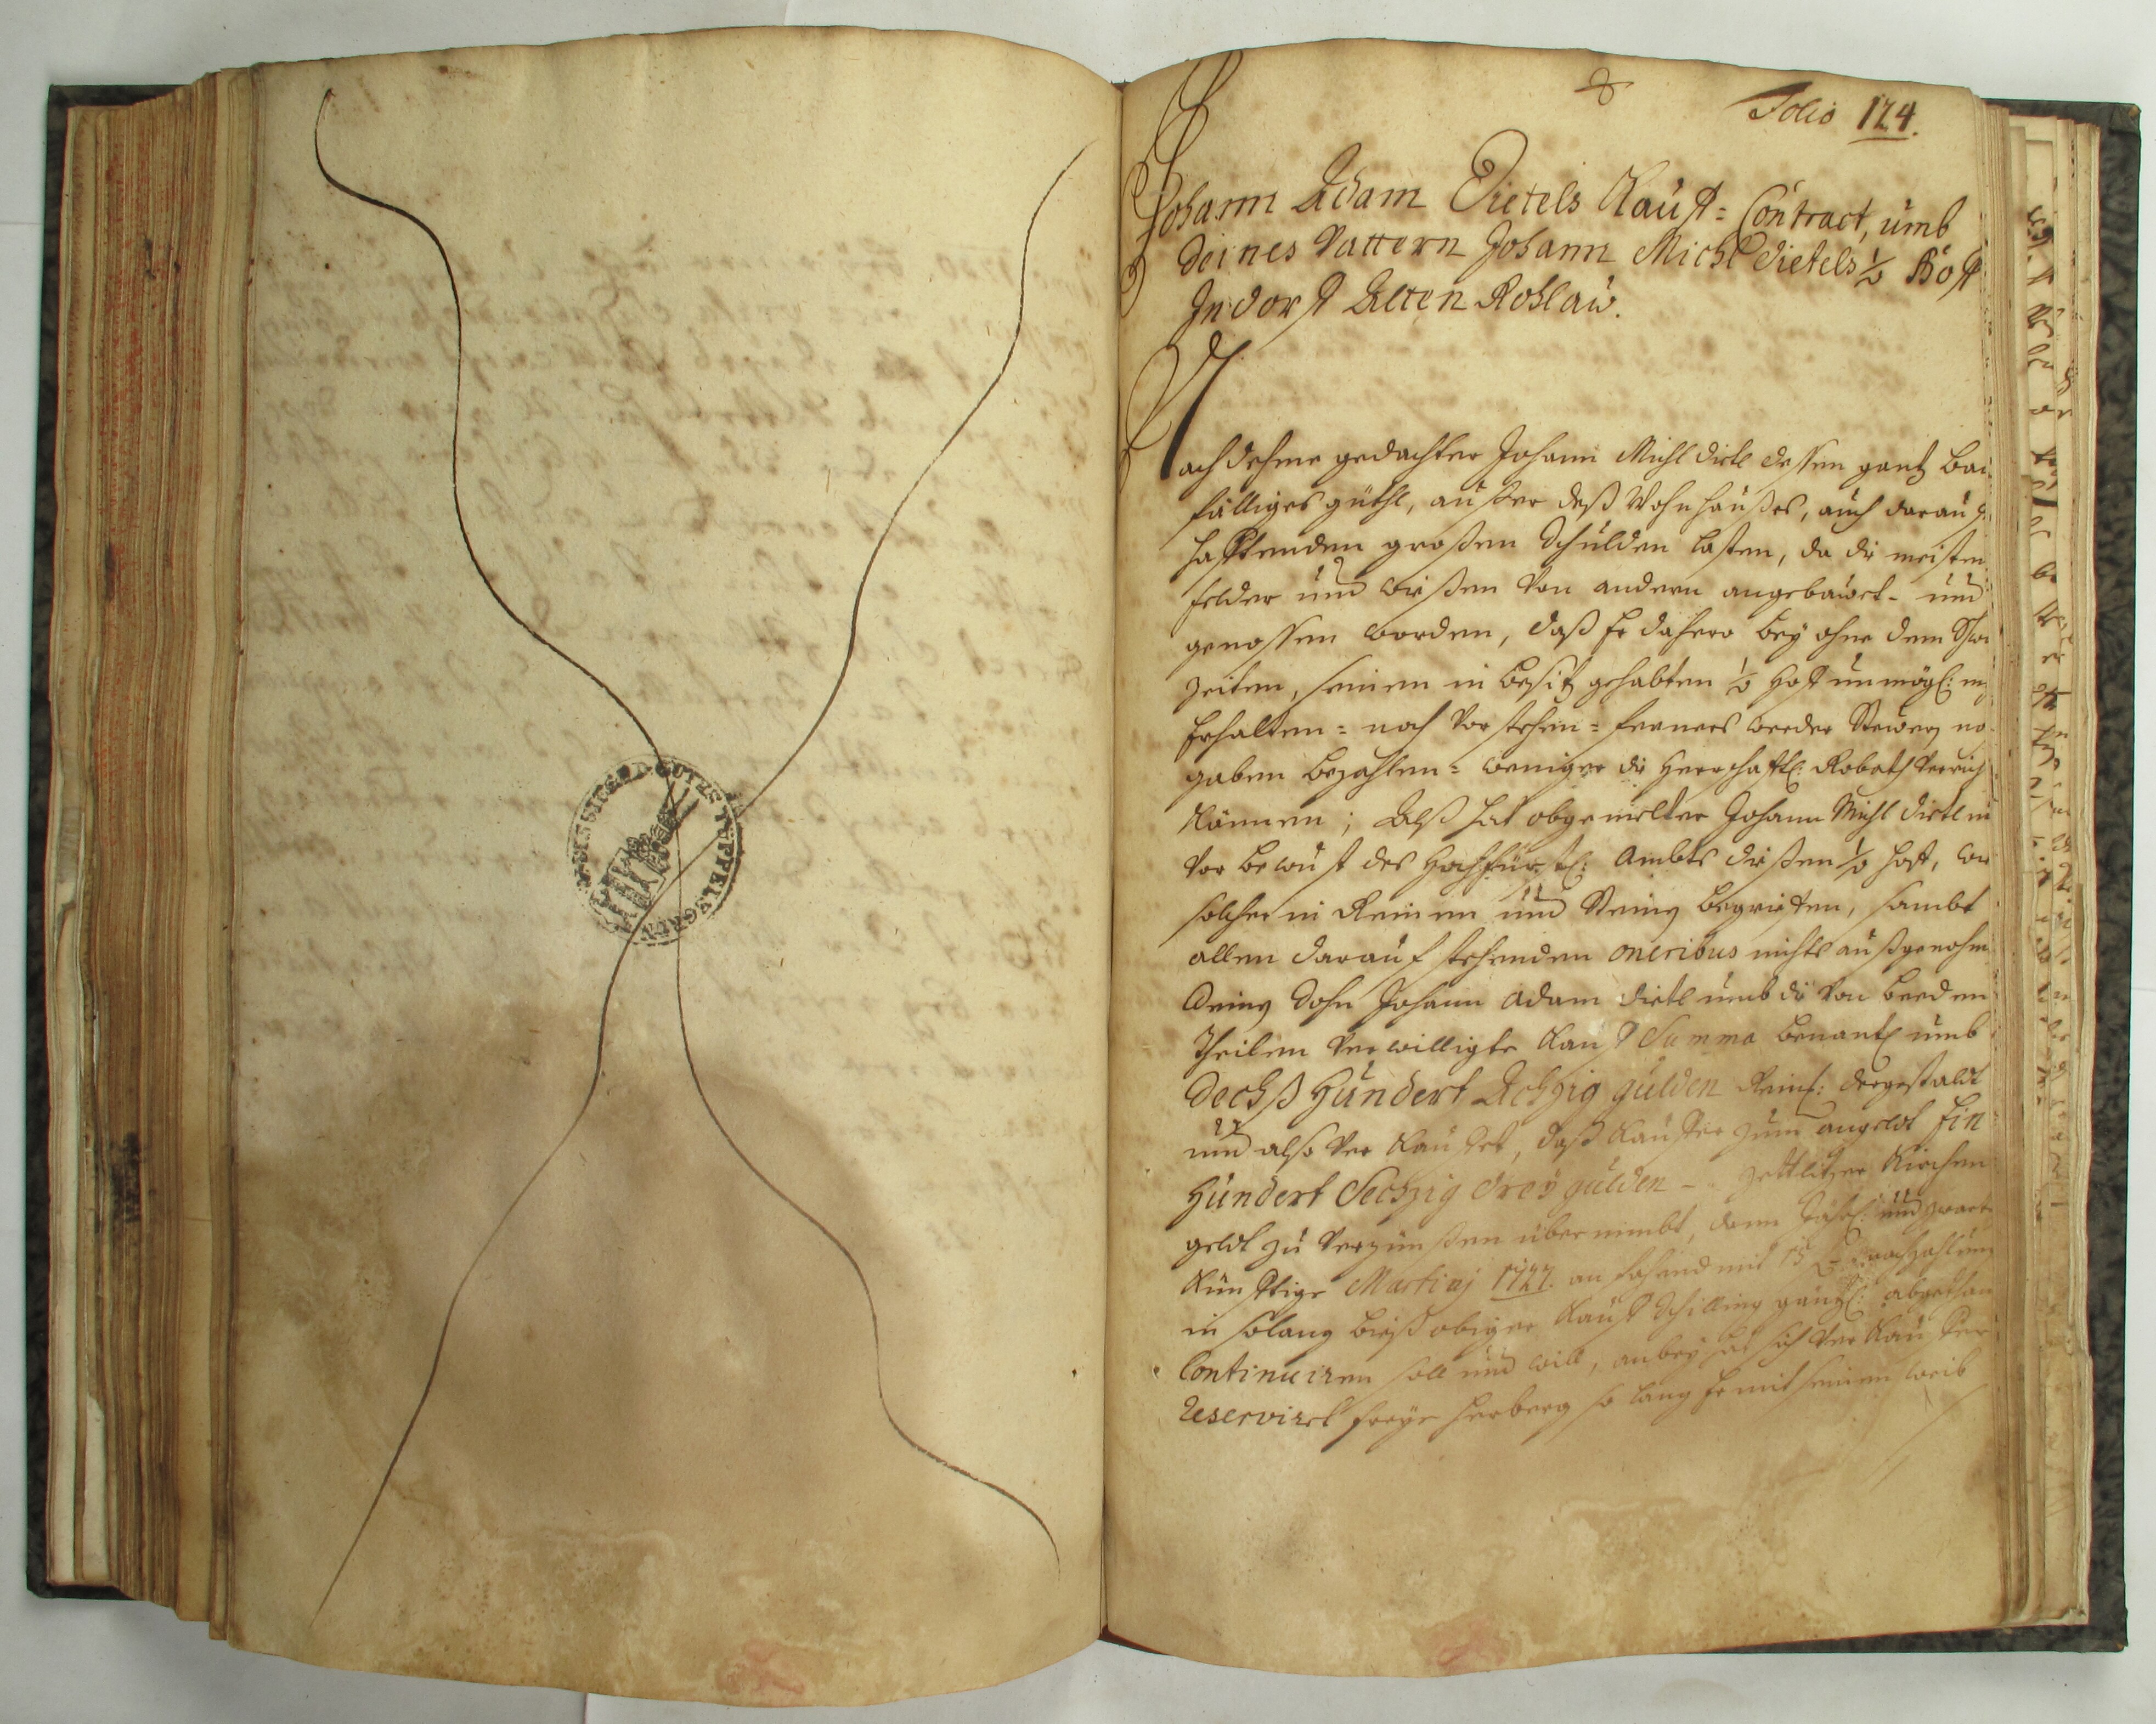 Folio 124.
Johann Adam Dietels Kauff= Contract, umb
Seines Vattern Johann Michl Dietels 1/2 Hoff
In dorff Alten Rohlau.
Nach dehme gedachter Johann Michl Dietl dessen gantz bau
fälliges güthl, außer deß Wohnhaußes, auch darauf
hafftenden großen Schulden lasten, da die meisten
felder und wießen von andern angebauet- und
genossen worden, daß Er dahero bey ohne dem
zeiten, seinen in besitz gehabten 1/2 Hoff unmögl:
Erhalten= noch vorstehen= ferners weeder Steuer, no
gaben bezahlen= weniger die Herrschafftl: Robath verrich
können; Alß hat obgemelter Johann Michl Dietl mi
vor bewust des Hochfürstl: Ambts dießen 1/2 hoff, wie
solcher in Reinen und Steinen begrieffen, sambt
allen darauf stehenden oneribus nichts außgenohm
Seinen Sohn Johann Adam Dietl umb die von beeden
Theilen verwilligte Kauff Summa benantl umb
Sechß Hundert Achzig gulden Reinl: dergestaldt
und also verkauffet, daß Kauffer zum angeldt Ein
Hundert Sechzig drey gulden - Zettlitzer Kirchen
geldt zu verzünßen übernimbt, dann Jährl: und zwar
künfftige Martinj 1727. anfahend mit 15 f nachzahlung
in solang bieß obiger Kauff Schilling gäntzl: abgethan
Continuiren soll und will, anbey hat sich verkauffer
Reservirt freye herberg so lang Er mit seinem weib